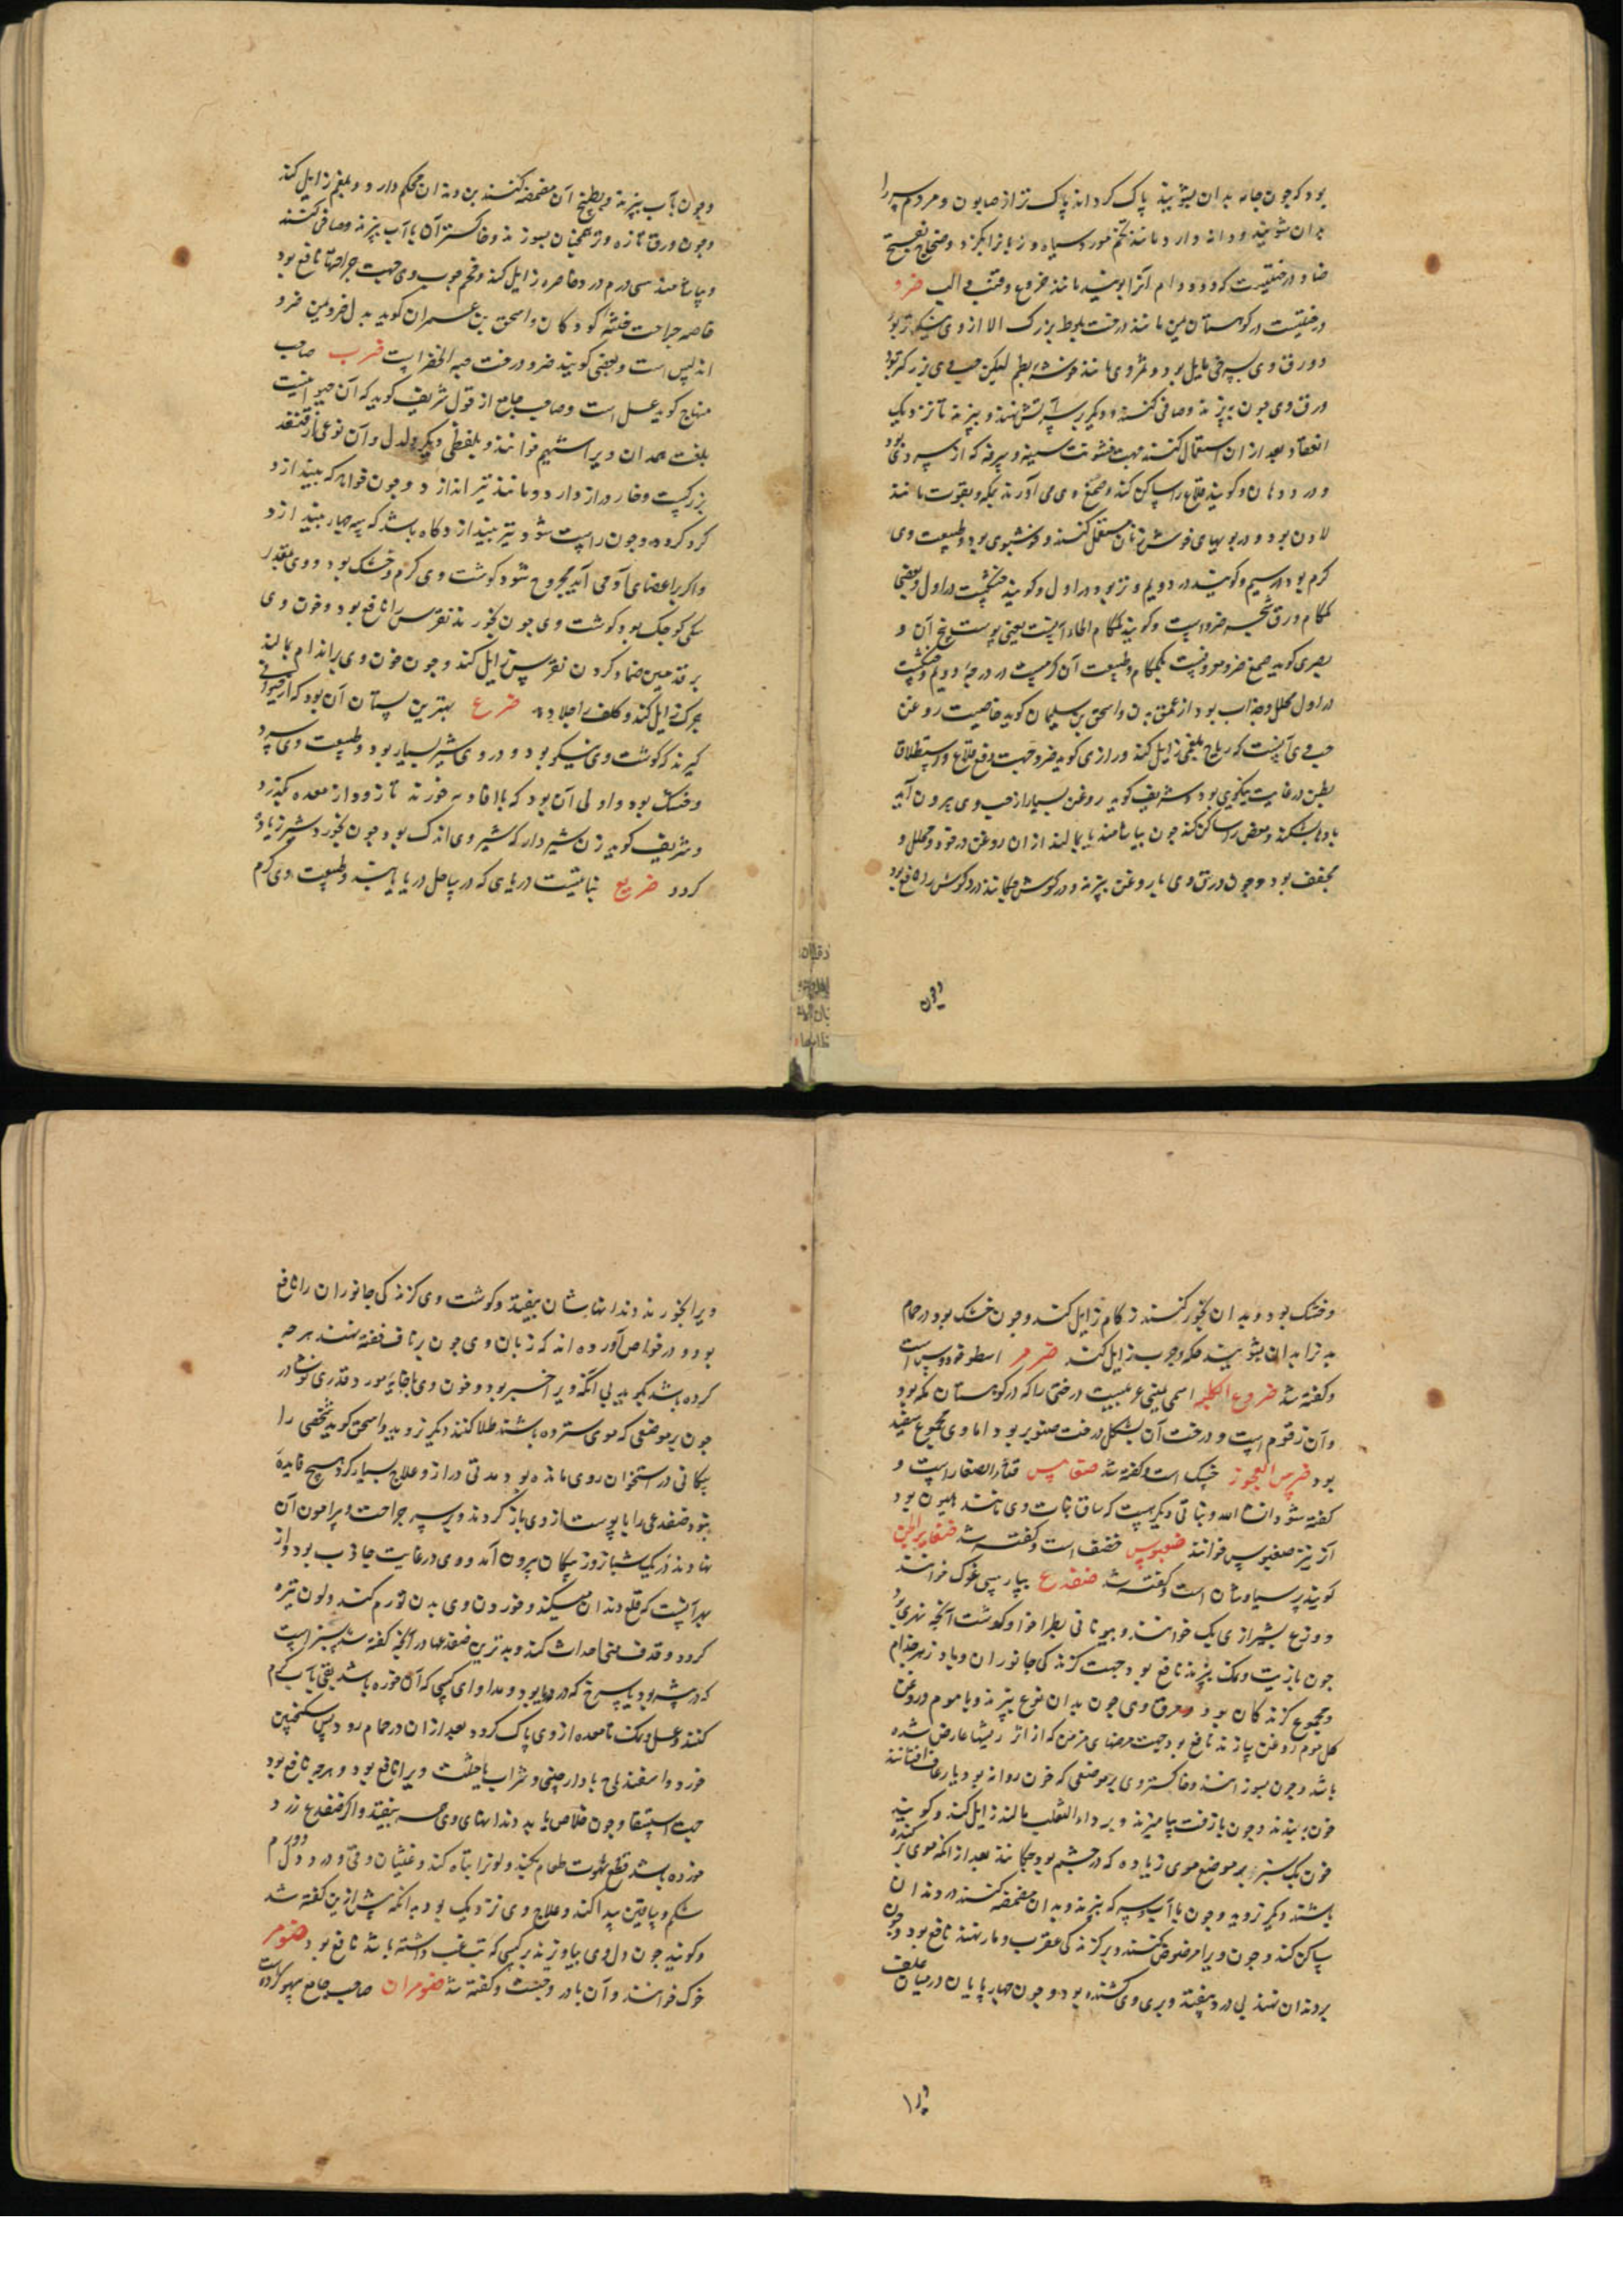 بود که چون جامه بدان بشویند پاک گرداند پاک تر از صابون و مردم سر را
بدان شویند و دانه دارد مانند تخم مورد سیاه و زبانرا بگزد و
درختیست که آنرا مانند ضرو
درختیست در کوهستان یمن مانند درخت بلوط بزرک الا از وی نیکوتر بود
و ورق وی بسرخی مایل بود و ثمر وی مانند خوشه بطم لیکن حب وی بزرکتر بود
ورق وی چون بپزند و صافی کنند و دیگر بر سر آتش نهند و بپزند تا نزدیک
انعقاد بعد از ان استعمال کنند جهت خشونت سینه و سرفه که از سردی بود
و درد دهان و کویند قلاع را ساکن کند و صمغ وی می آورند بمکه و بقوت مانند
لادن بود و در بویهای خوش زنان مستعمل کنند و خوشبوی بود و طبیعت وی
کرم بود در سیم و کویند در دویم و تر بود در اول و کویند خشکست در اول و بعضی
کمکام ورق شجره ضرو است و کویند کمکام لحاء آنست یعنی پوست بیخ آن و
بصری کوید صمغ ضرو معروفست بکمکام و طبیعت آن کرمست در درجه دویم و خشکست
در اول محلل و جذاب بود از عمق بدن و اسحق بن سلیمان کوید خاصیت روغن
حب وی آنست که ریاح بلغمی زایل کند و رازی کوید ضرو جهت دفع قلاع و استطلاق
بطن در غایت نیکویی بود و شریف کوید روغن بسیار از حب وی بیرون آید
بادها بشکند و مغص را ساکن کند چون بیاشامند یا بمالند از ان روغن و محلل و
مجفف بود و چون ورق وی با روغن بپزند و در کوش چکانند درد کوش را نافع بود
وچون
و چون بآب بپزند و بطبیخ آن مضمضه کنند بن دندان محکم دارد و بلغم زایل کند
و چون ورق تازه وتر همچنان بسوزند و خاکستر آن باآب بپزند و صافی کنند
و بیاشامند سی درم درد خاصره زایل کند و فحم چوب وی جهت جراحتها نافع بود
خاصه جراحت ختنه کودکان و اسحق بن عمران کوید بدل ضرو یمن ضرو
اندلس است و بعضی کویند ضرو درخت حبه الخضرا است ضرب صاحب
منهاج کوید عسل است و صاحب جامع از قول شریف کوید که آن حیوانیست
بلغت همدان ویرا شیهم خوانند و بلفظی دیگر دلدل و آن نوعی از قنفذ
بزرکست و خار دراز دارد و مانند تیر اندازد و چون خواهد که بیندازد
کرد کرده و چون راست شود تیر بیندازد و گاه باشد که سه چهار بیندازد
و اگر بر اعضای آدمی آید مجروح شود گوشت وی گرم و خشک بود و وی بقدر
سکی کوچک بود گوشت وی چون بخورند نقرس را نافع بود و خون وی
بر قدمین ضماد کردن نقرس زایل کند و چون خون وی بر اندام بمالند
زایل کند و کلف را جلا دهد ضرع بهترین پستان آن بود که از حیوانی
گیرند که گوشت وی نیکو بود و در وی شیر بسیار بود و طبیعت وی سرد
و خشک بود و اولی آن بود که با افاویه خورند تا زود از معده بگذرد
و شریف کوید زن شیردار که شیر وی اندک بود چون بخورد شیر زیاده
کردد ضریع نباتیست دریای که در ساحل دریا یابند و طبیعت وی کرم
و خشک بود و بدان بخور کنند زکام زایل کند و چون خشک بود در حمام
بدن را بدان بشویند حکه و جرب زایل کند ضرم اسطوخودوس است
و گفته شد ضروع الکلبه اسمی یمنی عربیست درختی را که در کوهستان مکه بود
و آن زقوم است و درخت آن بشکل درخت صنوبر بود اما وی مجموع سفید
بود ضرس العجوز خسک است و گفته شد ضغابیس قثاء الصغار است و
گفته شود ان شاء الله و نباتی دیگر هست که ساق نبات وی مانند هلیون بود
آنرا نیز ضغبوس خوانند ضغبوس است و گفته شد ضفایر الجن
کویند پر سیاوشان است و گفته شد ضفدع بپارسی غوک خوانند
و وزغ بشیرازی بک خوانند و بیونانی بطراخو و گوشت آنچه نهری بود
چون با زیت و نمک بپزند نافع بود جهت گزندگی جانوران و پادزهر جذام
و مجموع گزندگان بود و مرق وی چون بدان نوع بپزند و با موم و روغن
گل موم روغن سازند نافع بود جهت مرضهای مزمن که از اثر ریشها عارض شده
باشد و چون بسوزانند و خاکستر وی بر موضعی که خون روانه بود یا رعاف افشانند
خون ببندد و چون با زفت بیامیزند و بر داء الثعلب بمالند زایل کند و کویند
خون بک سبز بر موضع موی زیاده که در چشم بود چکانند بعد از آنکه موی بر کنده
باشند دیگر نروید و چون با آب و سرکه بپزند و بدان مضمضه کنند درد دندان
ساکن کند و چون ویرا مرضوض کنند و بر گزندگی عقرب و مار نهند نافع بود و چون
بر دندان نهند بی درد بیفتد و بری وی کشنده بود و چون چهارپایان در میان علف
ویرا
ویرا بخورند دندانهاشان بیفتد و گوشت وی گزندگی جانوران را نافع
بود و در خواص آورده اند که زبان وی چون بر ناف خفته نهند هر چه
کرده باشد بگوید بی آنکه ویرا خبر بود و خون وی
چون بر موضعی که موی سترده باشند طلا کنند دیگر نروید و اسحق کوید شخصی را
پیکانی در استخوان روی مانده بود مدتی دراز و علاج بسیار کرد هیچ فایده
نبود ضفدعی را با پوست از وی باز کردند و بر سر جراحت و پیرامون آن
نهادند در یک شبانروز پیکان بیرون آمد و وی در غایت جاذب بود و از
بهر آنست که قلع دندان میکند و خوردن وی بدن تورم کند و لون تیره
کردد و قذف منی احداث کند و بدترین ضفدعها در آنچه گفته شد سبز است
که در بیشه بود یا سرخ که در دریا بود و مداوای کسی که آن خورده باشد بقی بآب گرم
کنند و عسل و نمک تا معده از وی پاک گردد بعد از ان در حمام رود پس سکنجبین
خورد و اسفیدباج با دارچینی و شراب ویرا نافع بود و هر چه نافع بود
جهت استسقا و چون خلاص یابد دندانهای وی همه بیفتد و اگر ضفدع زرد
خورده باشد قطع شهوت طعام بکند و لونرا تباه کند و غثیان و قی و درد دل و ورم
شکم و ساقین پیدا کند و علاج وی نزدیک بود بدانکه پیش ازین گفته شد
و کویند چون دل وی بیاویزند بر کسی که تب غب داشته باشد نافع بود ضوم
خرک خوانند و آن بادروجست و گفته شد ضومران صاحب جامع سهو کرده است